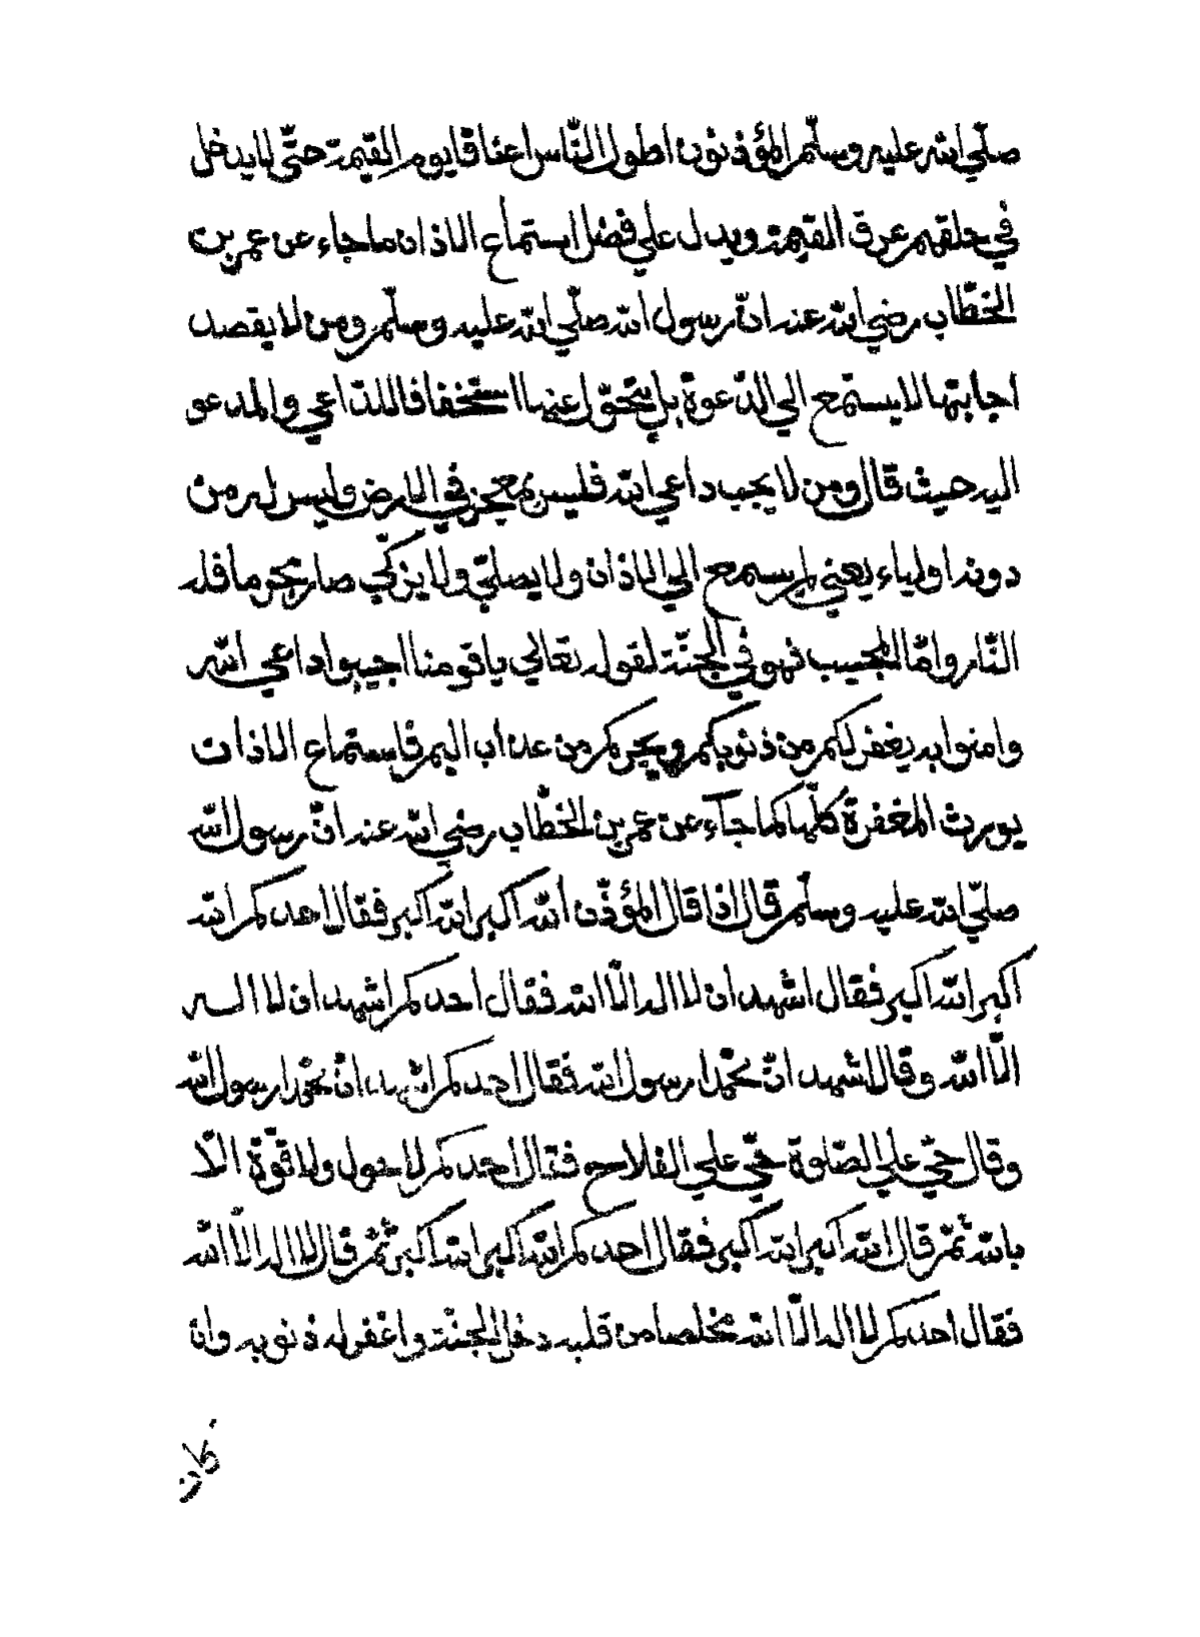 صلّي الله عليه وسلّم المؤذنون اطول النّاس اعناقا يوم القيمة حتّي لا يدخل
في حلقهم عرق القيمة ويدل علي فضل استماع الاذان ما جاء عن عمر بن
الخطّاب رضي الله عنه انّ رسول الله صلّي الله عليه وسلّم ومن لا يقصد
اجابتها لا يستمع الي الدّعوة بل يتحوّل عنها استخفافا للدّاعي والمدعو
اليه حيث قال ومن لا يجب داعي الله فليس بمعجز في الارض وليس له من
دونه اولياء يعني لم يستمع الي الاذان ولا يصلّي ولا يزكّي صار بحرما فله
النّار وامّا المجيب فهو في الجنّة لقوله تعالي يا قومنا اجيبوا داعي الله
وامنوا به يغفر لكم من ذنوبكم ويجركم من عذاب اليم فاستماع الاذان
يورث المغفرة كلّها كما جآء عن عمر بن الخطّاب رضي الله عنه انّ رسول الله
صلّي الله عليه وسلّم قال اذا قال المؤذّن الله اكبر الله اكبر فقال احدكم الله
اكبر الله اكبر فقال اشهد ان لا اله الّا الله فقال احدكم اشهد ان لا اله
الّا الله وقال اشهد انّ محمّدا رسول الله فقال احدكم اشهد انّ محمّدا رسول الله
وقال حيّ علي الصّلوة حيّ علي الفلاح فقال احدكم لا حول ولا قوّة الّا
بالله ثمّ قال الله اكبر الله اكبر فقال احدكم الله اكبر الله اكبر ثمّ قال لا اله الّا الله
فقال احدكم لا اله الّا الله مخلصا من قلبه دخل الجنّة واغفر له ذنوبه وان
كان